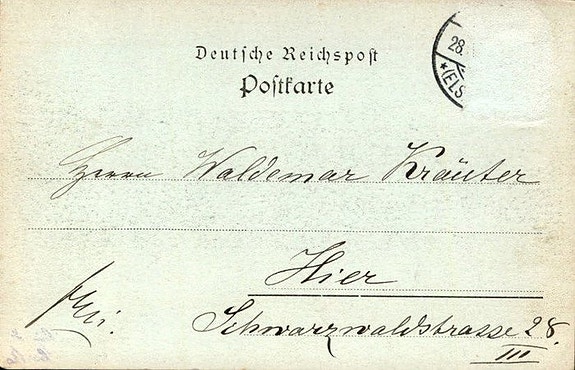 28.
*(ELS
Deutsche Reichspost
Postkarte
Herrn Waldemar Kräuter
Hier
frei.
Schwarzwaldstrasse 28.
III